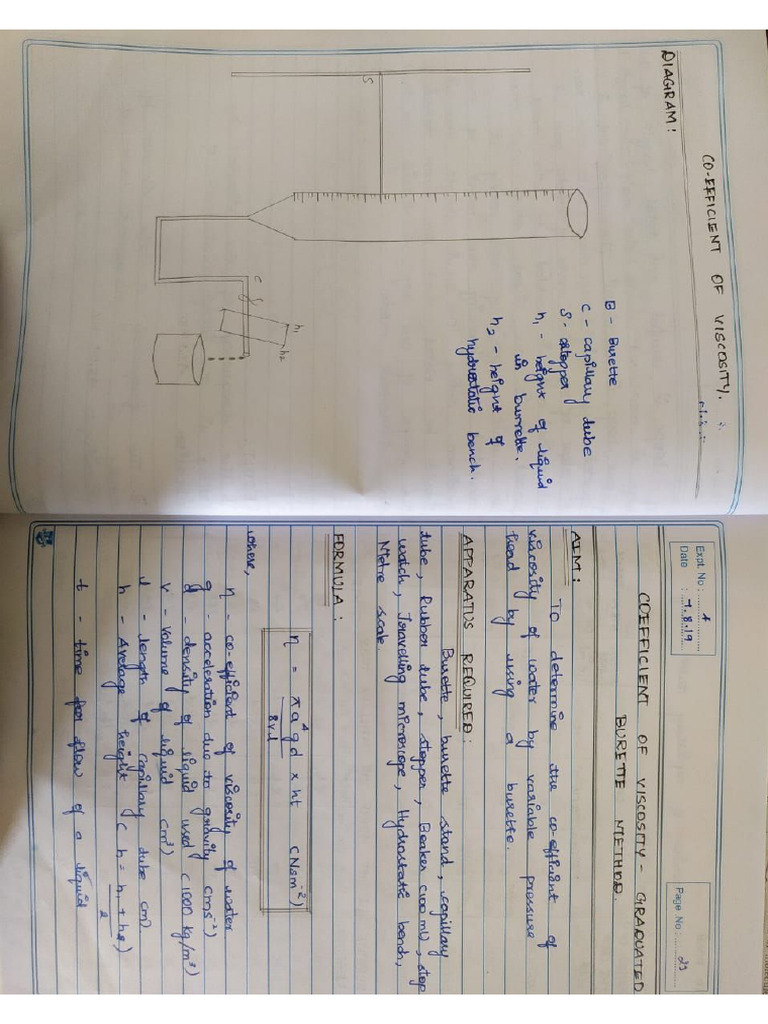 CO-EFFICIENT OF VISCOSITY.
DIAGRAM:
S
C
h1
h2
B - Burette
C - capillary tube
S - stopper
h1 - height of liquid
in burette.
h2 - height of
hydrostatic bench.
Expt. No : 4
Date : 7.8.19
Page No : 29
COEFFICIENT OF VISCOSITY - GRADUATED
BURETTE METHOD.
AIM:
To determine the co-efficient of
viscosity of water by variable pressure
head by using a burette.
APPARATUS REQUIRED:
Burette, burette stand, capillary
tube, Rubber tube, stopper, Beaker (100 ml), stop
watch, Travelling microscope, Hydrostatic bench,
Metre scale.
FORMULA:
η = πa⁴gd / 8vl × ht (Nsm⁻²)
where,
η - co-efficient of viscosity of water
g - acceleration due to gravity (ms⁻²)
d - density of liquid used (1000 kg/m³)
v - volume of liquid (m³)
l - length of capillary tube (m).
h - Average height (h = h1 + h2 / 2)
t - time for flow of a liquid